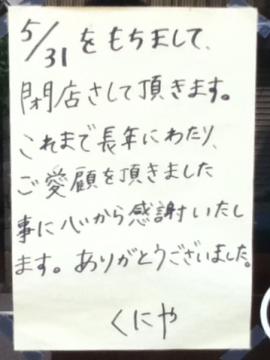 5/31をもちまして、
閉店さして頂きます。
これまで長年にわたり、
ご愛顧を頂きました
事に心から感謝いたし
ます。ありがとうございました。
くにや